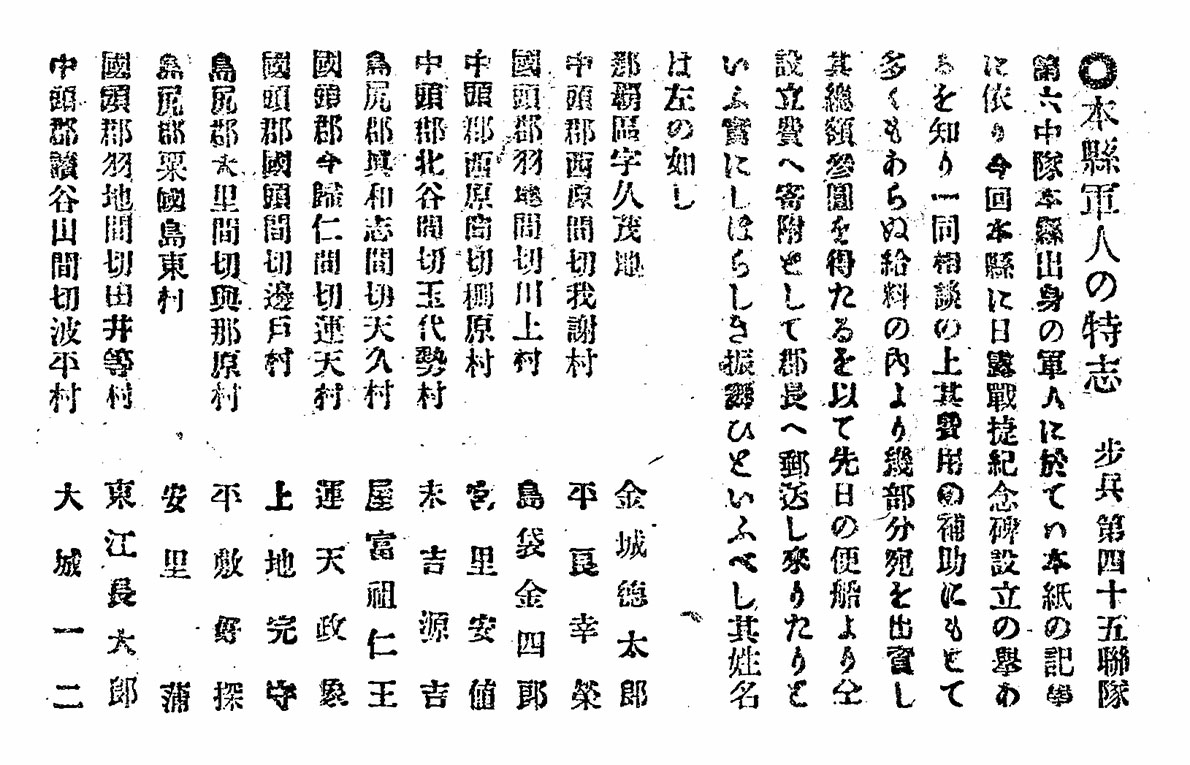 ◉本縣軍人の特志　步兵第四十五聯隊
第六中隊本縣出身の軍人に於てハ本紙の記事
に依り今回本縣に日露戰捷紀念碑設立の擧あ
るを知り一同相談の上其費用の補助にもとて
多くもあらぬ給料の內より幾部分宛を出資し
其總額參圓を得たるを以て先日の便船より仝
設立費へ寄附として郡長へ郵送し來りたりと
いふ實にしほらしき振舞ひといふべし其姓名
は左の如し
那覇區字久茂地　金城德太郎
中頭郡西原間切我謝村　平良幸榮
國頭郡羽地間切川上村　島袋金四郎
中頭郡西原間切棚原村　宮里安値
中頭郡北谷間切玉代勢村　末吉源吉
島尻郡眞和志間切天久村　屋富祖仁王
國頭郡今歸仁間切運天村　運天政象
國頭郡國頭間切邊戶村　上地完守
島尻郡大里間切與那原村　平敷好探
島尻郡粟國島東村　安里蒲
國頭郡羽地間切田井等村　東江長太郎
中頭郡讀谷山間切波平村　大城一二